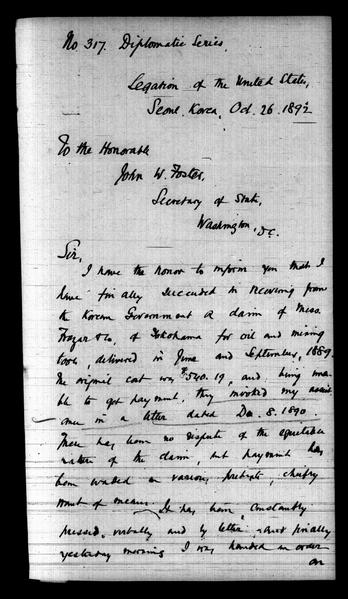 No 317. Diplomatic Series.
Legation of the United States,
Seoul, Korea, Oct. 26. 1892
To the Honorable
John W. Foster,
Secretary of State,
Washington, D.C.
Sir,
I have the honor to inform you that I
have finally succeeded in recovering from
the Korean Government a claim of Mess.
Frazar & Co, of Yokohama for oil and mining
tools, delivered in June and September, 1889.
The original cost was $540.19, and being una-
ble to get payment, they invoked my assist
ance in a letter dated Dec. 8. 1890.
There has been no dispute of the equitable
nature of the claim, but payment has
been evaded on various pretexts, chiefly
want of means. It has been constantly
pressed, verbally and by letter, and finally
yesterday morning I was handed an order
on